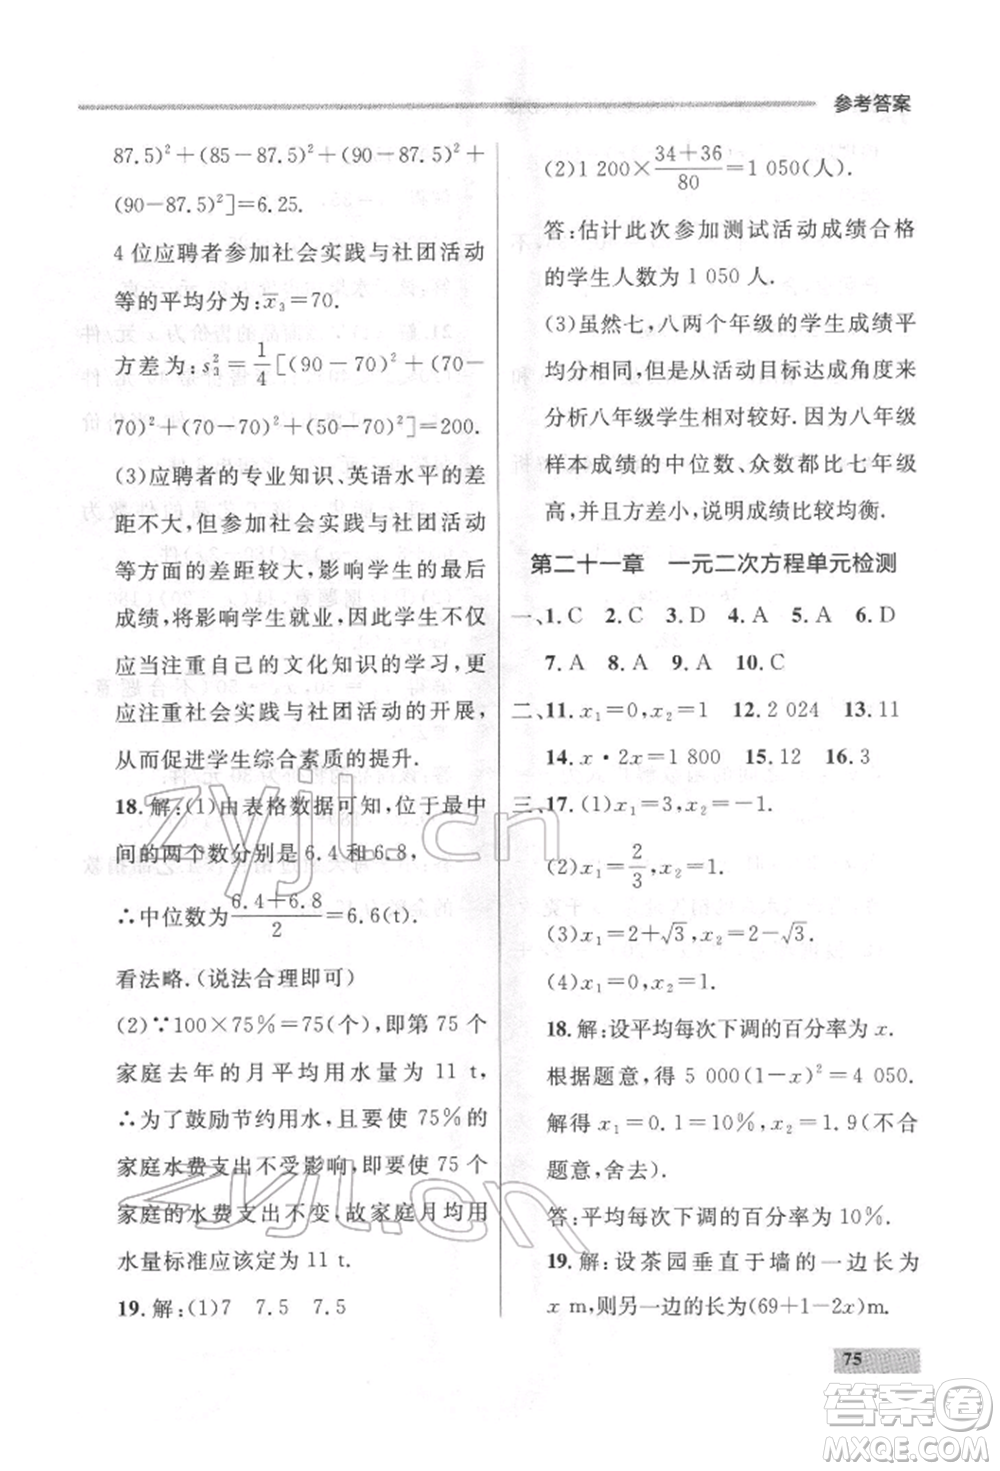 参考答案
87.5)²+(85－87.5)²+(90－87.5)²+
(90－87.5)²]=6.25.
4 位应聘者参加社会实践与社团活动
等的平均分为:x̄₃=70.
方差为:s₃²=1/4[(90－70)²+(70－
70)²+(70－70)²+(50－70)²]=200.
(3)应聘者的专业知识、英语水平的差
距不大,但参加社会实践与社团活动
等方面的差距较大,将影响学生的最后
成绩,将影响学生就业,因此学生不仅
应当注重自己的文化知识的学习,更
应注重社会实践与社团活动的开展,
从而促进学生综合素质的提升.
18.解:(1)由表格数据可知,位于最中
间的两个数分别是 6.4 和6.8,
∴中位数为(6.4+6.8)/2=6.6(t).
看法略.(说法合理即可)
(2)∵100×75%=75(个),即第 75 个
家庭去年的月平均用水量为 11 t,
∴为了鼓励节约用水,要使 75%的
家庭水费支出不受影响,即要使 75
家庭的水费支出不变,故家庭月均用
水量标准应该定为 11 t.
19.解:(1)7 7.5 7.5
(2)1 200×(34+36)/80=1 050(人).
答:估计此次参加测试活动成绩合格
的学生人数为 1 050 人.
(3)虽然七,八两个年级的学生成绩平
均分相同,但从活动目标达成角度来
分析八年级学生相对较好.因为八年级
样本成绩的中位数、众数都比七年级
高,且方差小,说明成绩比较均衡.
第二十一章 一元二次方程单元检测
一、1.C 2.C 3.D 4.A 5.A 6.D
7.A 8.A 9.A 10.C
二、11.x₁=0,x₂=1 12.2 024 13.11
14.x·2x=1 800 15.12 16.3
三、17.(1)x₁=3,x₂=－1.
(2)x₁=2/3,x₂=4.
(3)x₁=2+√3,x₂=2－√3.
(4)x₁=0,x₂=1.
18.解:设平均每次下调的百分率为 x.
根据题意,得 5 000(1－x)²=4 050.
解得 x₁=0.1=10%,x₂=1.9(不合
题意,舍去).
答:平均每次下调的百分率为 10%.
19.解:设茶园垂直于墙的一边长为
x m,则另一边的长为(69+1－2x)m.
75
zyjl.cn
zyjl.cn
答案圈
MXQE.COM